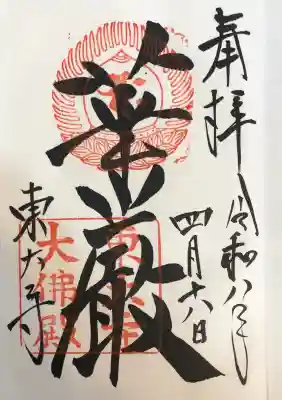 奉拝
令和八年
四月十八日
華厳
東大寺
東大寺
大佛殿